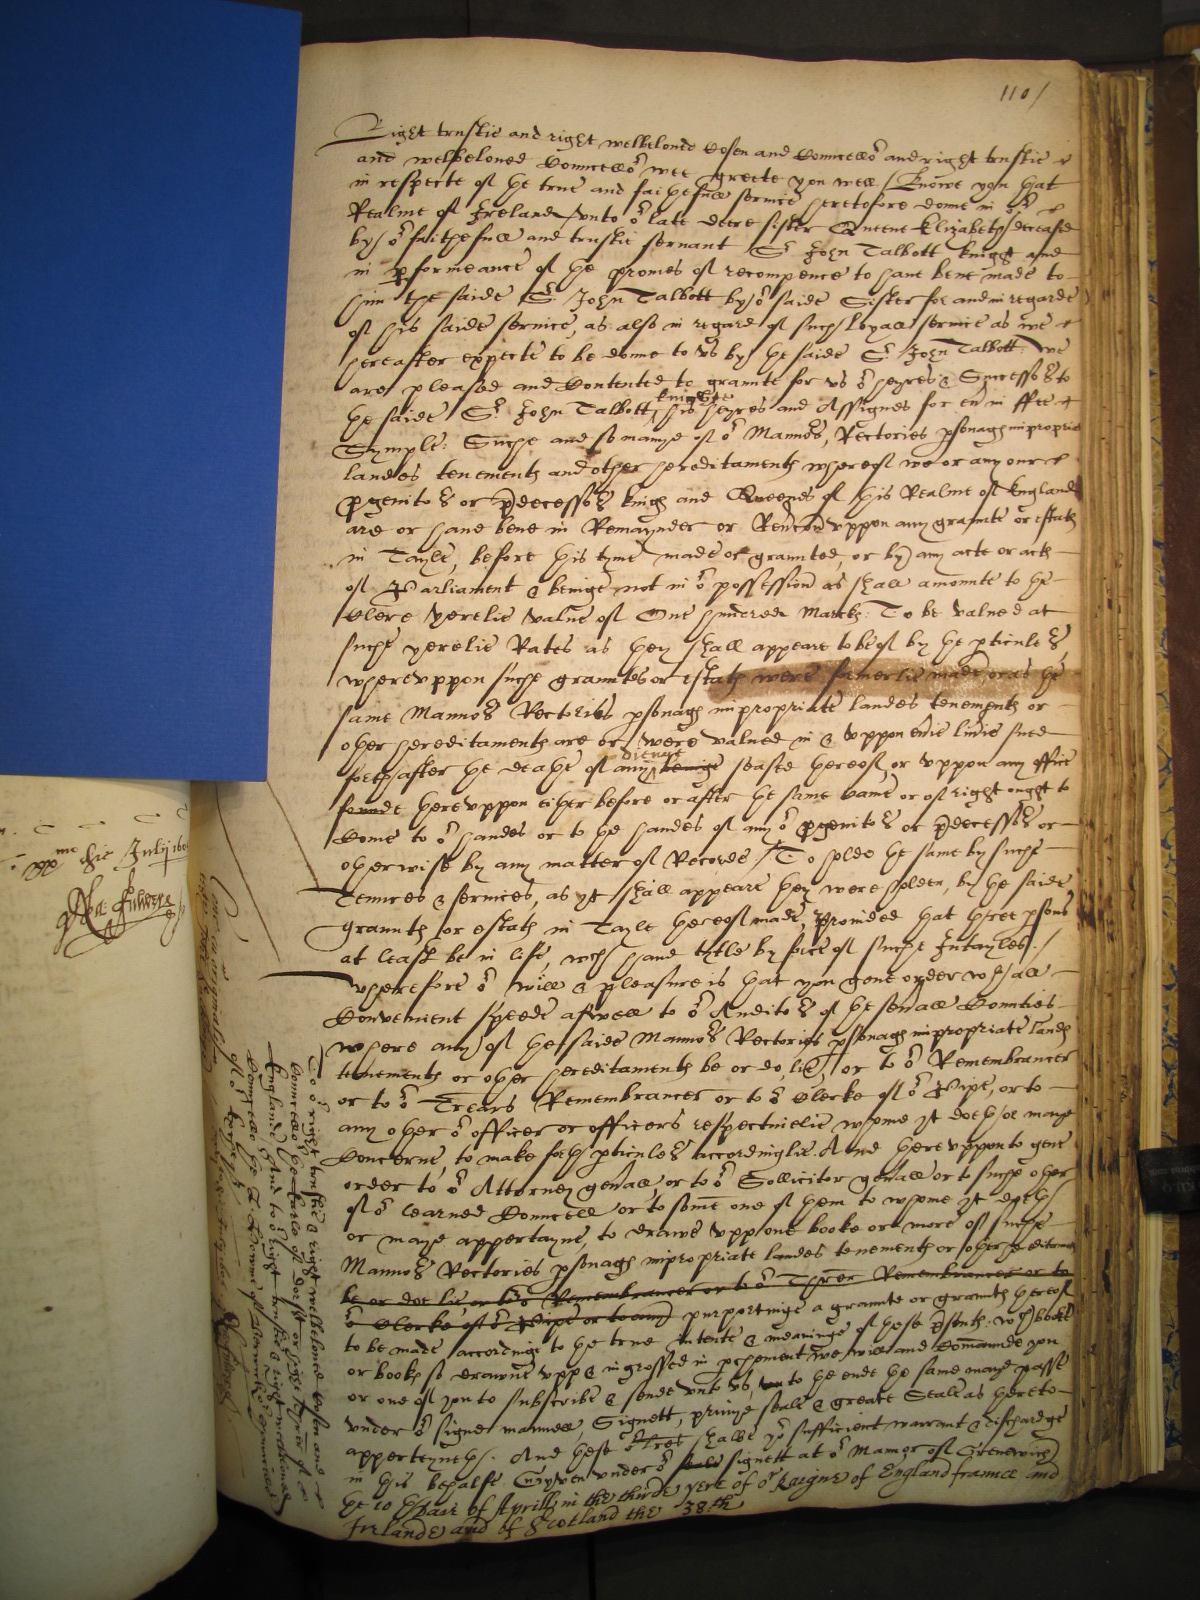 110/
Right trustie and right welbeloved Cosen and Councello^r and right trustie
and welbeloved Councello^r wee greete you well / Knowe you that
in respecte of the true and faithefull service heretofore donne in o^r
Realme of Ireland, unto o^r late deere sister Queene Elizabeth deceased
by o^r faithefull and trustie servant S^r John Talbott knight and
in pformeance of the promes of recompence to have bene made to
him the saide S^r John Talbott by o^r saide Sister for and in regarde
of his saide service, as also in regard of such loyall service as we
hereafter expecte to be donne to us by the saide S^r John Talbott. We
are pleased and Contented to graunte for us o^r heyres & Successo^rs to
the saide S^r John Talbott, knighte his heyres and Assignes for ev in ffee
Symple: Suche and so manye of o^r Manno^rs, Rectories psonags impropriat
landes tenements and other hereditaments whereof we or any our
pgenito^rs or pdecesso^rs kings and Queenes of this Realme of England
are or have bene in Remaynder or Revercon uppon any graunte or estats
in Tayle, before this tyme made or graunted, or by any acte or acts
of Parliament & beinge not in o^r possession as shall amounte to the
Clere yerelie value of One hundred Marcks: To be valued at
suche yerelie Rates as they shall appeare to be of by the pticule^rs,
whereuppon suche grauntes or estats were formerlie made, or as the
same Manno^rs Rectories psonags impropriate landes tenements or
other hereditaments are or were valued in & uppon evie liverie sued
forth after the deathe of any beinge seased thereof, or uppon any office
founde thereuppon either before or after the same came or of right ought to
Come to o^r handes or to the handes of any o^r pgenito^rs or pdecesso^rs or
otherwise by any matter of Recorde / To holde the same by suche
Tenures & services, as yt shall appeare they were holden, by the saide
graunts or estats in Tayle thereof made, Provided that three psons
at least be in life, w^ch have tytle by force of suche Intayles. /
Wherefore o^r will & pleasure is that you geve order w^th all
Convenient speede aswell to o^r Audito^rs of the sevall Counties
where any of the saide Manno^rs Rectories psonags impropriate lands
tenements or other hereditaments be or do, lie, or to o^r Remembrancer
or to o^r Treārs Remembrancer or to o^r Clerke of o^r Pipe, or to
any other o^r officer or officers respectivelie whome it doth or maye
Concerne, to make forth pticule^rs accordinglie. And thereuppon to geve
order to o^r Attorney genall, or to o^r Sollicitor genall or to suche other
of o^r learned Councell or to some one of them to whome it doth
or maye appertayne, to drawe upp one booke or more of suche
Manno^rs Rectories psonags impropriate landes tenements or other hereditaments
be or doe lie or to o^r Remembrancer or to o^r Threr Remembrancer or to
o^r Clerke of o^r Pipe or to any purportinge a graunte or graunts thereof
to be made accordinge to the true intente & meaninge of these psents: w^ch booke
or books so drawne upp & ingrossed in pchement we will and Commaunde you
or one of you to subscribe & sende unto us, to the ende the same maye passe
under o^r signe manuell, Signett, privye seale & greate Seale as hereto
apperteyneth. And these o^r lres shalbe yo^r sufficient warrant & dischardge
in this behalfe. Gyven under o^r signett at o^r Mano^r of Grenewich
the 10 th daie of Aprill in the thirde yere of o^r Raigne of England fraunce and
Irelande and of Scotland the 38.th
To o^r right trustie & right welbeloved Cosen and
Councello^r the Earle of Dorsett o^r highe Threr of
England And to o^r right trustie & right welbeloved
Councello^r the L. Hume of Barwicke Chauncelo^r
July